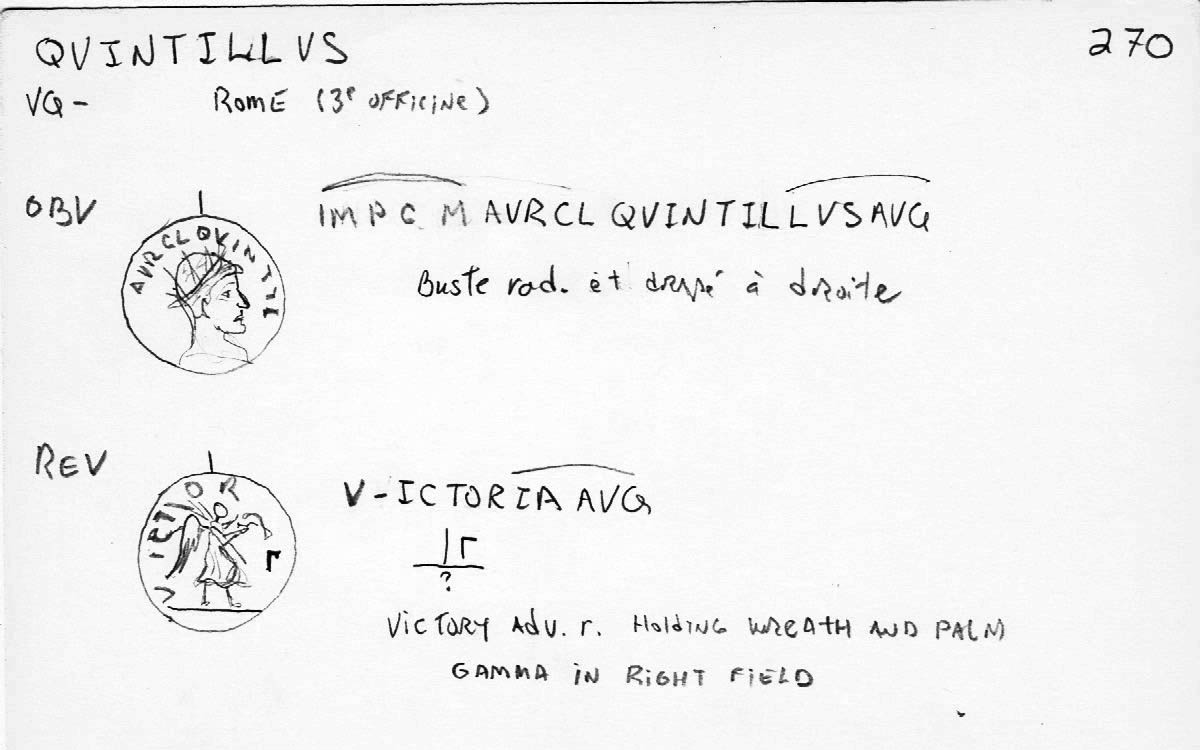 QVINTILLVS 270
VG- ROME (3e OFFICINE)
OBV IMP C M AVRCL QVINTILLVS AVG
AVRCLQVINTIL
Buste rad. et drapé à droite
REV V-ICTORIA AVG
VICTOR
Γ
|Γ
?
VICTORY ADV. r. HOLDING WREATH AND PALM
GAMMA IN RIGHT FIELD